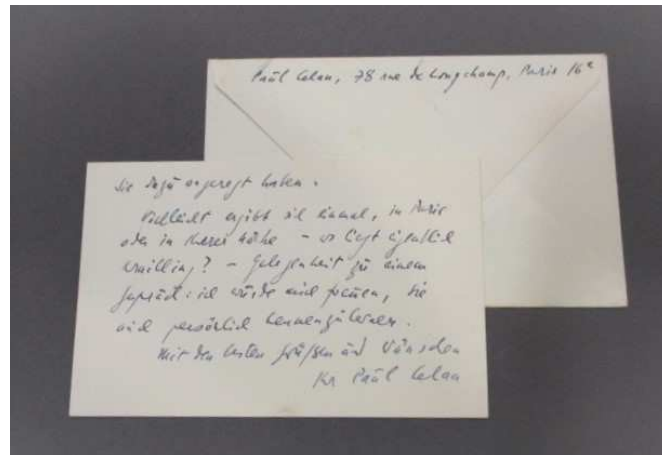 Paul Celan, 78 rue de Longchamp, Paris 16e
Sie dazu angeregt haben.
Vielleicht ergibt sich einmal, in Paris
oder in Ihrer Nähe – wo liegt eigentlich
Krailling? – Gelegenheit zu einem
Gespräch: ich würde mich freuen, Sie
auch persönlich kennenzulernen.
Mit den besten Grüßen und Wünschen
Ihr Paul Celan